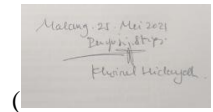 Malang, 21 Mei 2021
Penguji Skripsi
Khoirul Hidayah
(